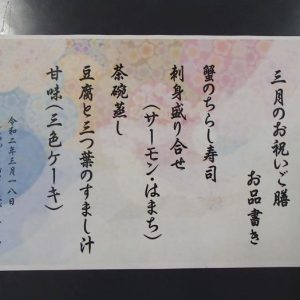 三月のお祝いご膳
お品書き
蟹のちらし寿司
刺身盛り合せ
(サーモン・はまち)
茶碗蒸し
豆腐と三つ葉のすまし汁
甘味(三色ケーキ)
令和二年三月一八日